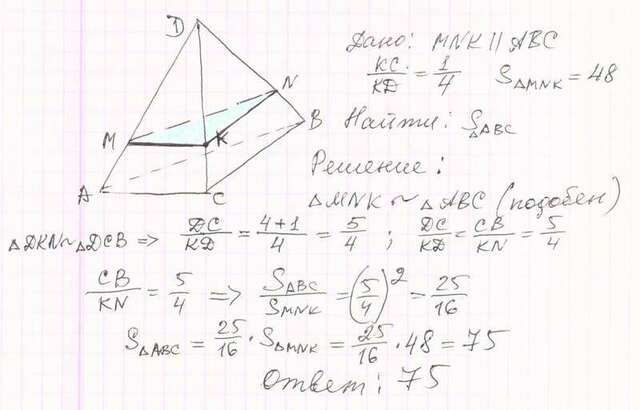 Дано: MNK || ABC
KC/KD = 1/4 S△MNK = 48
Найти: S△ABC
Решение:
△MNK ~ △ABC (подобен)
△DKN ~ △DCB => DC/KD = 4+1/4 = 5/4 ; DC/KD = CB/KN = 5/4
CB/KN = 5/4 => SABC/SMNK = (5/4)² = 25/16
S△ABC = 25/16 · S△MNK = 25/16 · 48 = 75
Ответ: 75
D
N
M
K
B
A
C